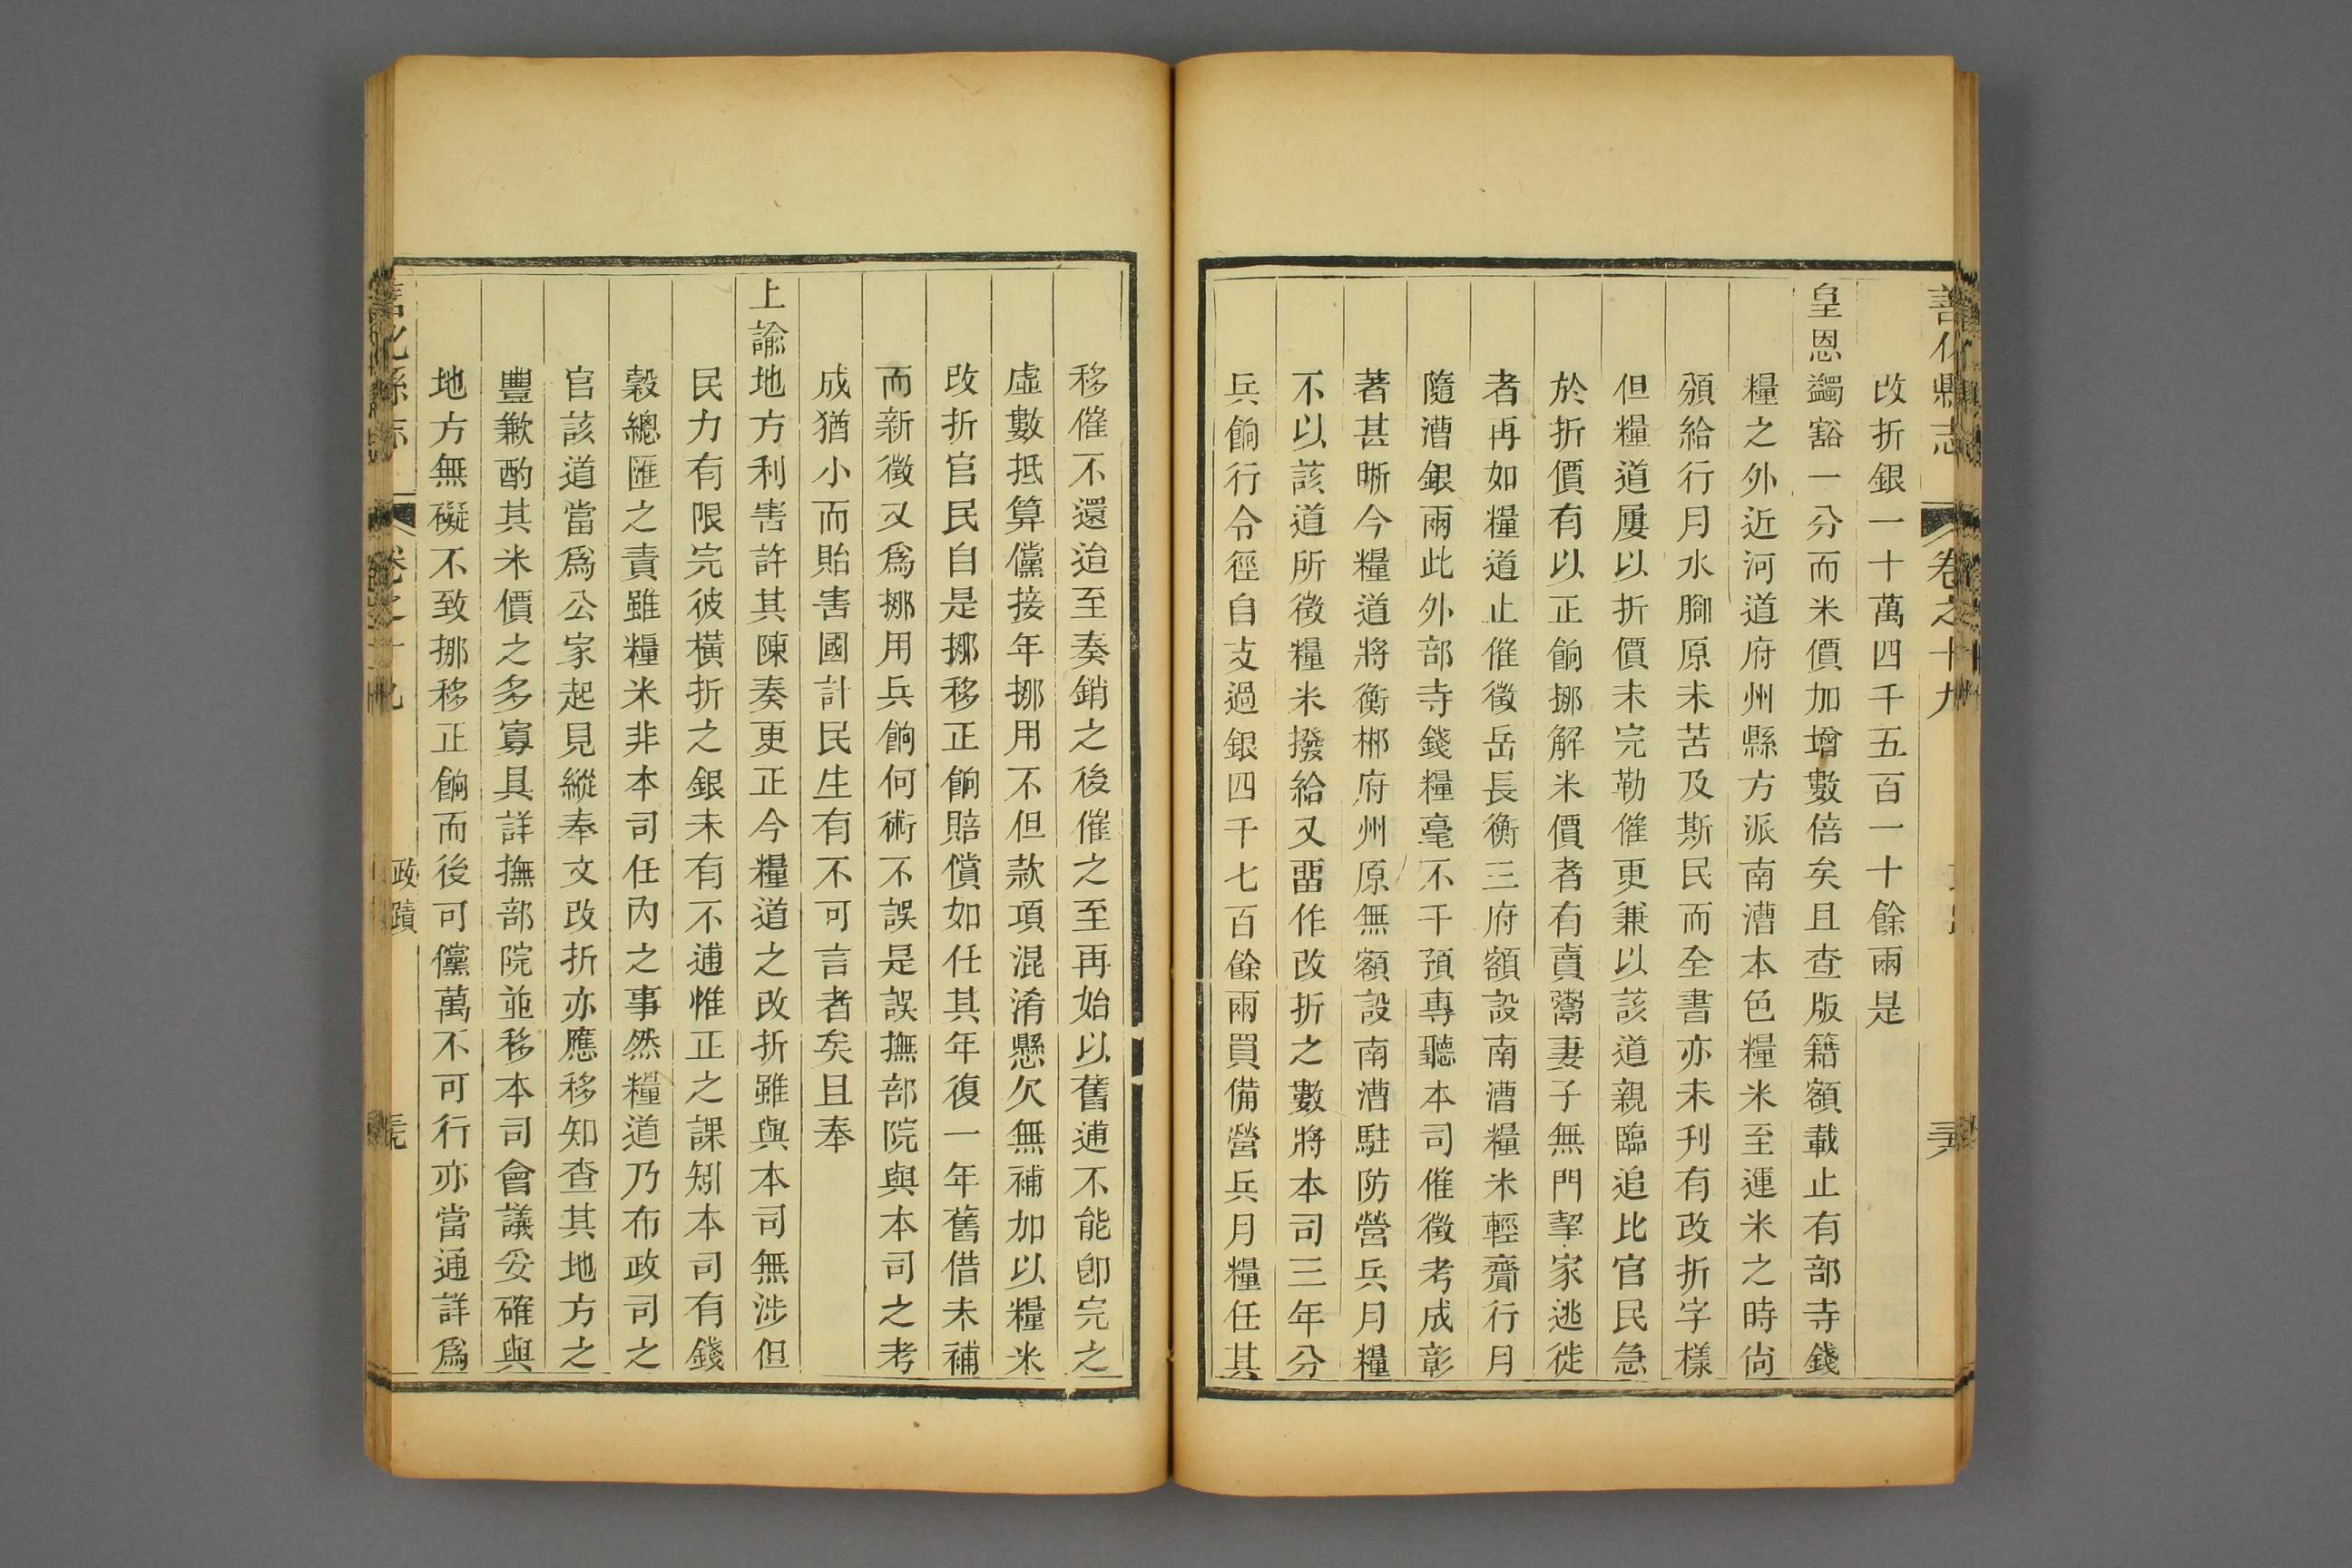 善化縣志
卷之十九
改折銀一十萬四千五百一十餘兩是
皇恩蠲豁一分而米價加增數倍矣且查版籍額載止有部寺錢
糧之外近河道府州縣方派南漕本色糧米至運米之時尙
頒給行月水腳原未苦及斯民而全書亦未刋有改折字樣
但糧道屢以折價未完勒催更兼以該道親臨追比官民急
於折價有以正餉挪解米價者有賣鬻妻子無門挈家逃徙
者再如糧道止催徵岳長衡三府額設南漕糧米輕齎行月
隨漕銀兩此外部寺錢糧毫不干預專聽本司催徵考成彰
著甚晰今糧道將衡郴府州原無額設南漕駐防營兵月糧
不以該道所徵糧米撥給又畱作改折之數將本司三年分
兵餉行令徑自支過銀四千七百餘兩買備營兵月糧任其
移催不還迨至奏銷之後催之至再始以舊逋不能卽完之
虛數抵算儻接年挪用不但款項混淆懸欠無補加以糧米
改折官民自是挪移正餉賠償如任其年復一年舊借未補
而新徵又爲挪用兵餉何術不誤是誤撫部院與本司之考
成猶小而貽害國計民生有不可言者矣且奉
上諭地方利害許其陳奏更正今糧道之改折雖與本司無涉但
民力有限完彼橫折之銀未有不逋惟正之課矧本司有錢
穀總匯之責雖糧米非本司任內之事然糧道乃布政司之
官該道當爲公家起見縱奉文改折亦應移知查其地方之
豐歉酌其米價之多寡具詳撫部院並移本司會議妥確與
地方無礙不致挪移正餉而後可儻萬不可行亦當通詳爲
善化縣志
卷之十九
政蹟